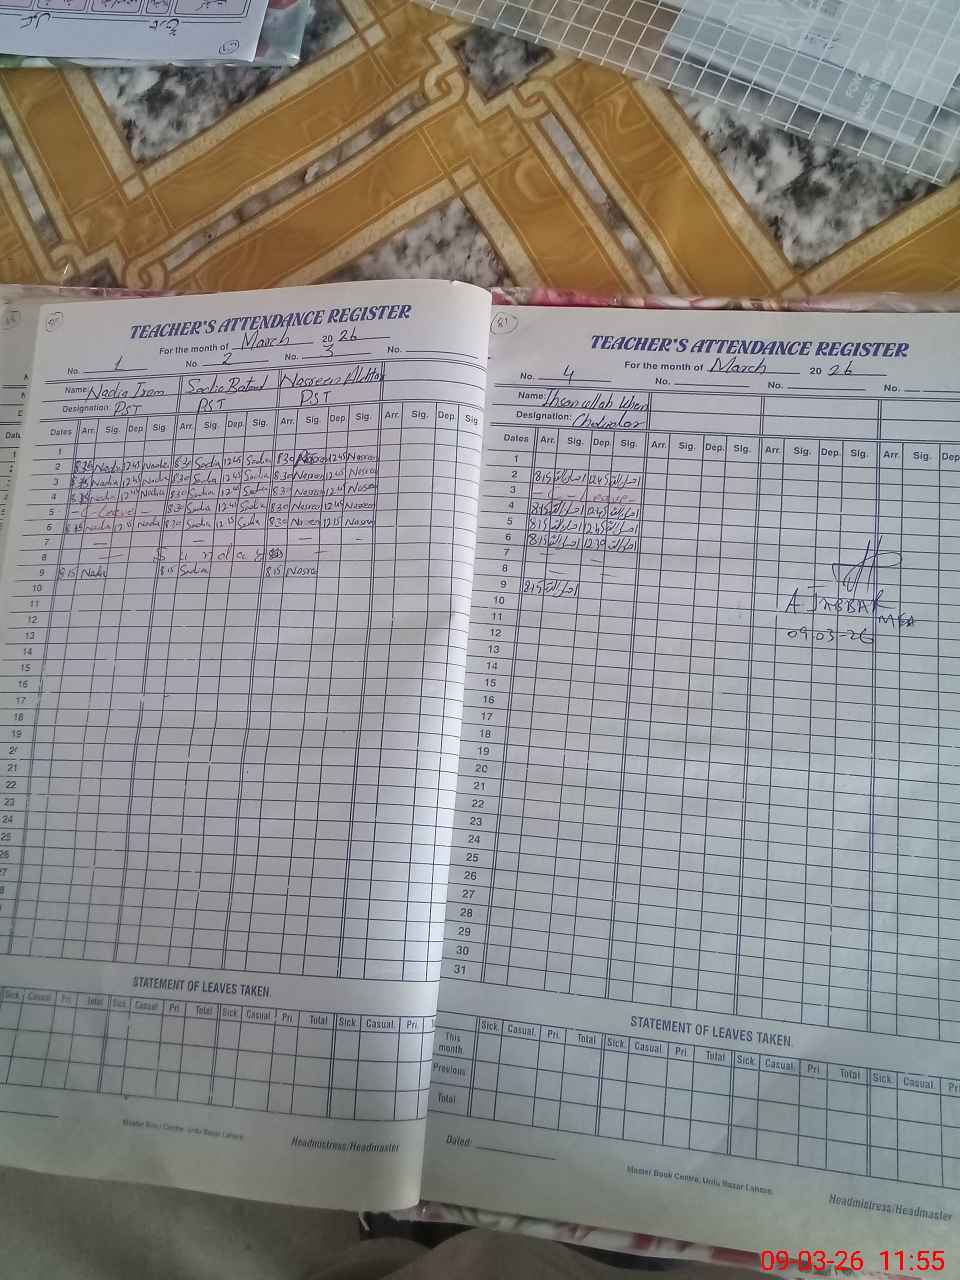 80
TEACHER'S ATTENDANCE REGISTER
For the month of March 2026
No. 1 No. 2 No. 3 No.
Name: Nadia Iram Sadia Batool Nasreen Akhtar
Designation: PST PST PST
Dates Arr. Sig. Dep Sig. Arr. Sig. Dep. Sig. Arr. Sig. Dep. Sig. Arr. Sig. Dep. Sig
1
2 835 Nadia 1245 Nadia 830 Sadia 1245 Sadia 830 Nasreen 1245 Nasreen
3 835 Nadia 1245 Nadia 830 Sadia 1245 Sadia 830 Nasreen 1245 Nasreen
4 835 Nadia 1245 Nadia 830 Sadia 1245 Sadia 830 Nasreen 1245 Nasreen
5 - C-Leave - 830 Sadia 1245 Sadia 830 Nasreen 1245 Nasreen
6 835 Nadia 1215 Nadia 830 Sadia 1215 Sadia 830 Nasreen 1215 Nasreen
7 — — —
8 — Sunday —
9 815 Nadia 815 Sadia 815 Nasreen
10
11
12
13
14
15
16
17
18
19
21
22
23
24
25
26
STATEMENT OF LEAVES TAKEN.
Sick. Casual. Pri. Total Sick. Casual. Pri. Total Sick. Casual. Pri. Total Sick. Casual. Pri.
Master Book Centre, Urdu Bazar Lahore.
Headmistress/Headmaster
81
TEACHER'S ATTENDANCE REGISTER
For the month of March 2026
No. 4 No. No. No.
Name: Ihsan ullah Khan
Designation: Chowkidar
Dates Arr. Sig. Dep. Sig. Arr. Sig. Dep. Sig. Arr. Sig. Dep. Sig. Arr. Sig. Dep
1
2 815 1245
3 - C - Leave -
4 815 1245
5 815 1245
6 815 1230
7 —
8 — —
9 815
10
11
12
13
14
15
16
17
18
19
20
21
22
23
24
25
26
27
28
29
30
31
A JABBAR
MEA
09-03-26
STATEMENT OF LEAVES TAKEN.
Sick. Casual. Pri. Total Sick. Casual. Pri. Total Sick. Casual. Pri. Total Sick. Casual. Pri
This month.
Previous
Total
Dated:
Master Book Centre, Urdu Bazar Lahore.
Headmistress/Headmaster
09-03-26 11:55